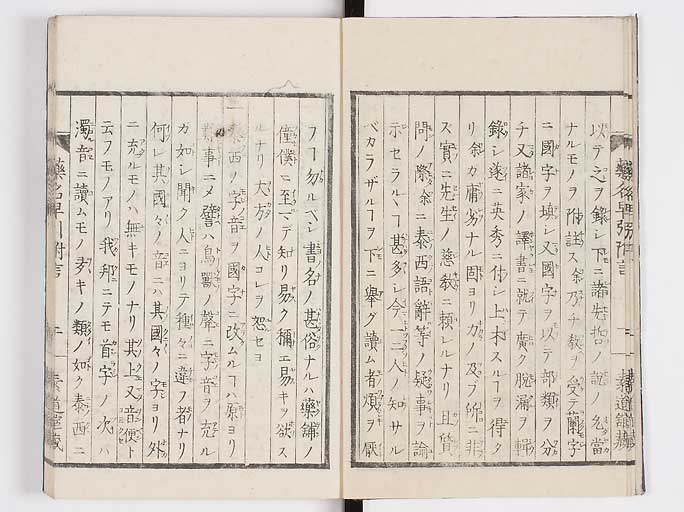 以テ之ヲ録シ下ニ諸先哲ノ説ノ允當
ナルモノヲ附註ス余乃チ教ヲ受テ蘭字
ニ國字ヲ填シ又國字ヲ以テ部類ヲ分
チ又諸家ノ譯書ニ就テ廣ク脱漏ヲ輯
録シ遂ニ英秀ニ付シ上木スルヿヲ得タ
リ余カ庸劣ナル固ヨリ力ノ及フ所ニ非
ス實ニ先生ノ慈教ニ頼レルナリ且皆
問ノ際余ニ泰西語辭等ノ疑事ヲ論
示セラルヽヿ甚多シ今一二人ノ知サル
ベカラザルヿヲ下ニ舉グ讀ム者煩ヲ厭
フヿ勿ルベシ書名ノ甚俗ナルハ藥舗ノ
僮僕ニ至マデ知リ易ク稱エ易キヲ欲ス
ルナリ大方ノ人コレヲ恕セヨ
一泰西ノ字ノ音ヲ國字ニ改ムルヿハ原ヨリ
事ニメ譬ハ鳥獸ノ聲ニ字音ヲ充ル
カ如シ聞ク人ニヨリテ種々ニ違フ者ナリ
何レ其國々ノ音ニハ其國々ノ字ヨリ外
ニ充ルモノハ無キモノナリ其上又音便ト
云フモノアリ我邦ニテモ首字ノ次ハ
濁音ニ讀ムモノ多キノ類ノ如ク泰西ニ
藥名早引附言
二
泰道堂藏